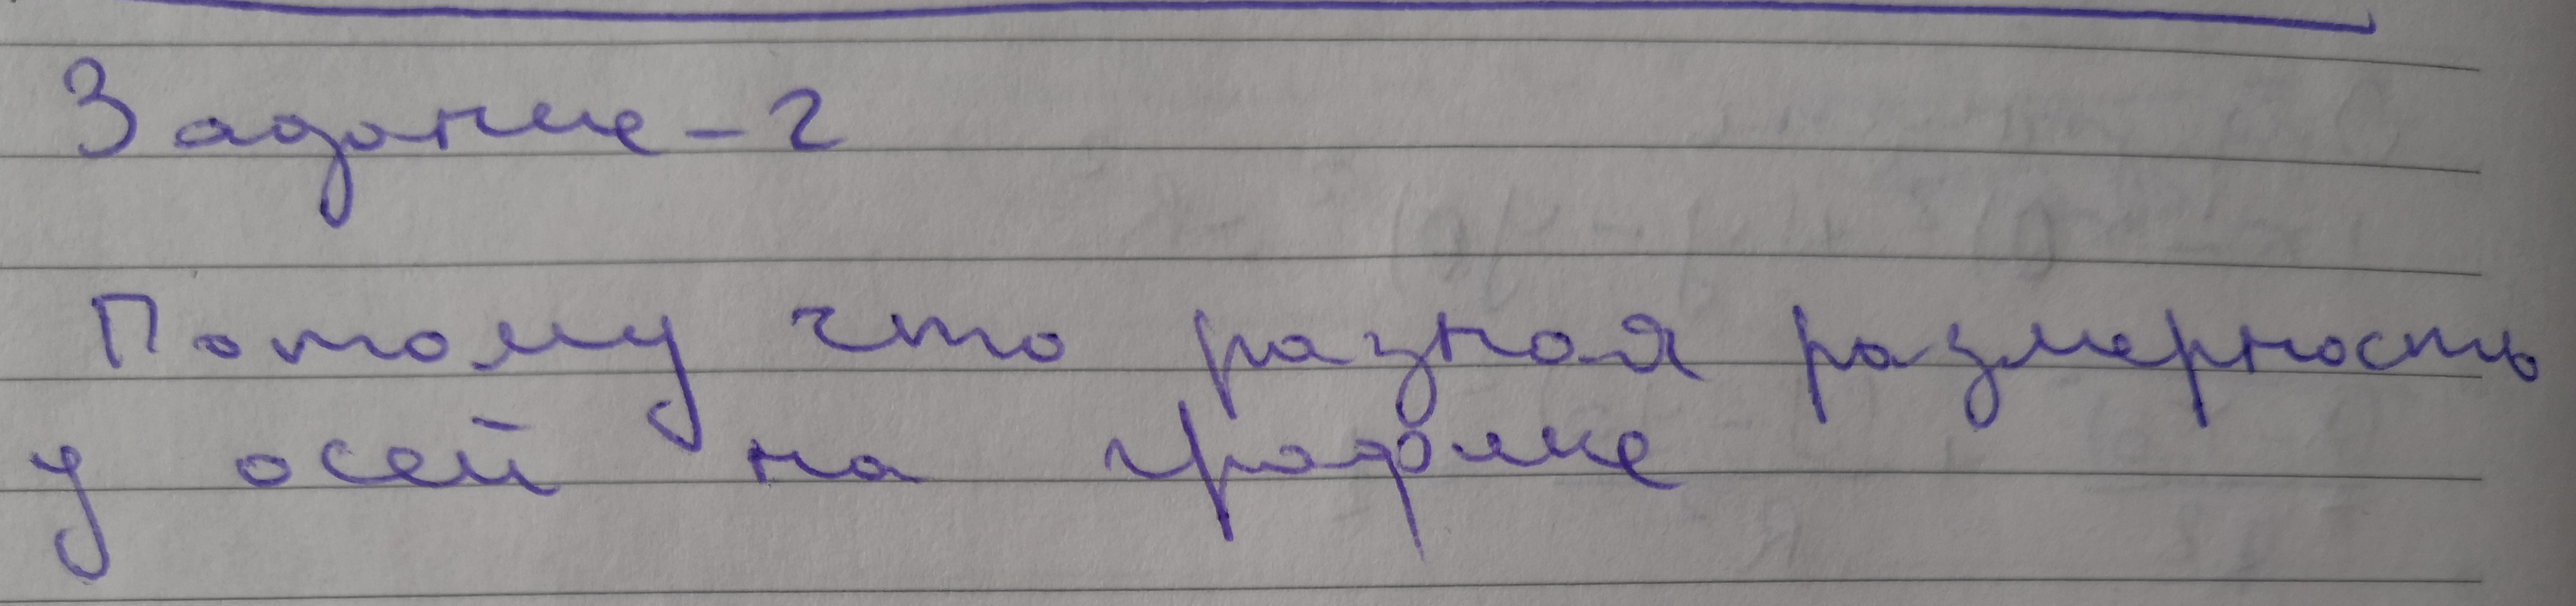 Задание-2
Потому что разная размерность
у осей на графике